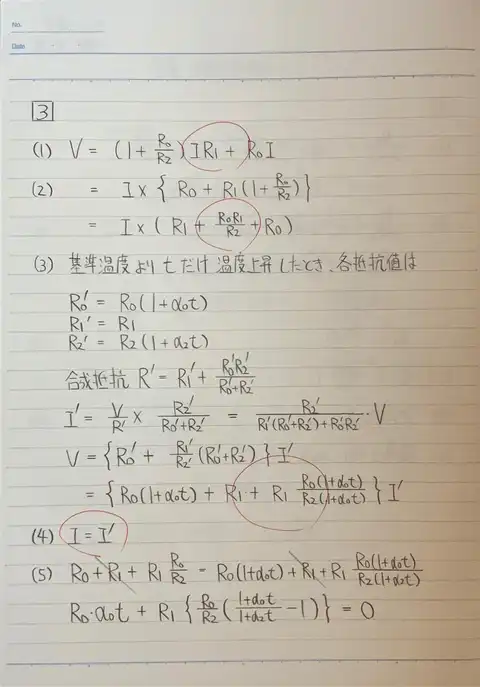 No.
Date
[3]
(1) V = (1 + R₀/R₂) I R₁ + R₀ I
(2) = I × { R₀ + R₁ (1 + R₀/R₂) }
= I × ( R₁ + R₀R₁/R₂ + R₀ )
(3) 基準温度より t だけ 温度上昇したとき、各抵抗値は
R₀' = R₀ (1 + α₀t)
R₁' = R₁
R₂' = R₂ (1 + α₂t)
合成抵抗 R' = R₁' + R₀'R₂'/(R₀'+R₂')
I' = V/R' × R₂'/(R₀'+R₂') = R₂'/(R₁'(R₀'+R₂')+R₀'R₂') · V
V = { R₀' + R₁'/R₂' (R₀'+R₂') } I'
= { R₀(1+α₀t) + R₁ + R₁ R₀(1+α₀t)/R₂(1+α₂t) } I'
(4) I = I'
(5) R₀ + R₁ + R₁ R₀/R₂ = R₀(1+α₀t) + R₁ + R₁ R₀(1+α₀t)/R₂(1+α₂t)
R₀·α₀t + R₁ { R₀/R₂ ( (1+α₀t)/(1+α₂t) − 1 ) } = 0